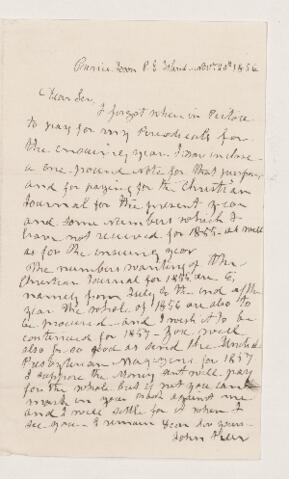 Town P. E. Island Novr 20th 1856
Dear Sir,
I forgot when in Pictou
to pay for my Periodicals for
the ensuing year I now inclose
a one pound note for that purpose
and for paying for the Christian
Journal for the present year
and some numbers which I
have not received for 1855 as well
as for the ensuing year
The numbers wanting of the
Christian Journal for 1855 are 6;
namely from July to the end of the
year the whole of 1856 are also to
be procured and I wish it to be
continued for 1857 - you will
also be so good as send the United
Presbyterian Magazine for 1857
I suppose the money sent will pay
for the whole but if not you can
mark on your book against me
and I will settle for it when I
see you I remain Dear Sir yours
John